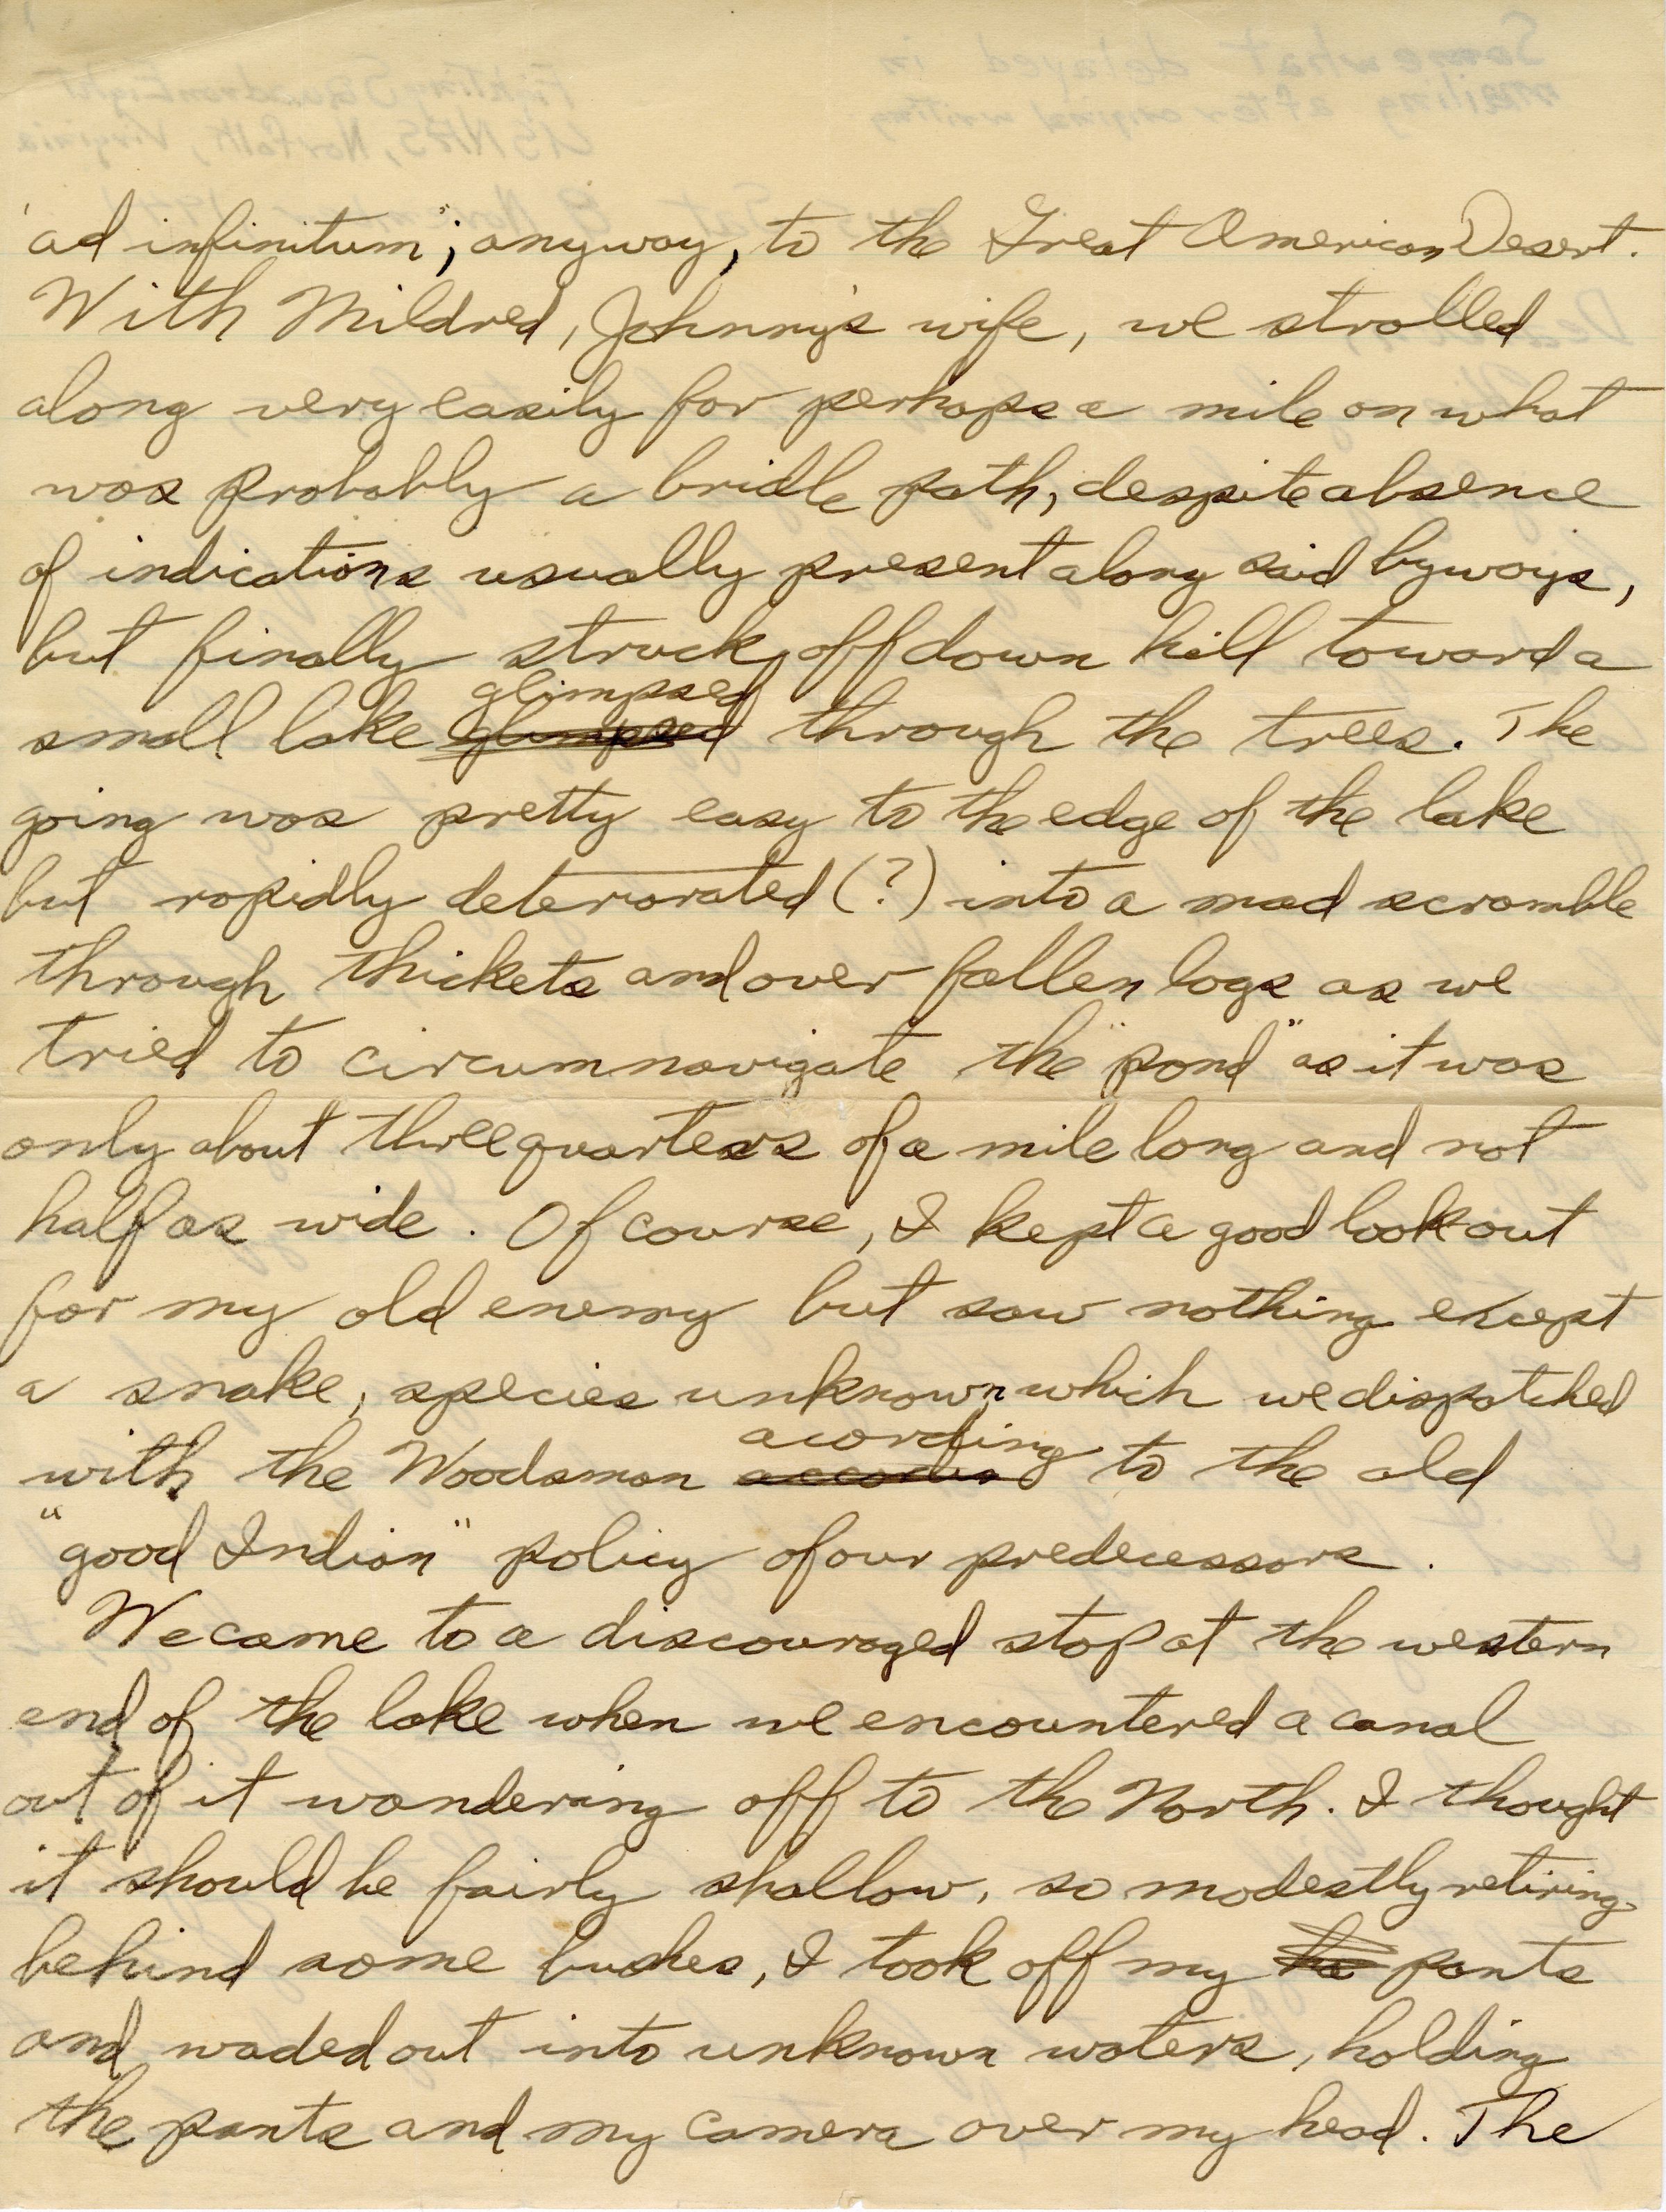 'ad infinitum"; anyway, to the Great American Desert.
With Mildred, Johnny's wife, we strolled
along very easily for perhaps a mile on what
was probably a bridle path, despite absence
of indications usually present along said byways,
but finally struck off down hill toward a
glimpsed
small lake glimpsed through the trees. The
going was pretty easy to the edge of the lake
but rapidly deteriorated (?) into a mad scramble
through thickets and over fallen logs as we
tried to circumnavigate the "pond" as it was
only about three quarters of a mile long and not
half as wide. Of course, I kept a good lookout
for my old enemy but saw nothing except
a snake, species unknown which we dispatched
acording
with the Woodsman to the old
"good Indian" policy of our predecessors.
We came to a discouraged stop at the western
end of the lake when we encountered a canal
out of it wandering off to the North. I thought
it should be fairly shallow, so modestly retiring
behind some bushes, I took off my the pants
and waded out into unknown waters, holding
the pants and my camera over my head. The
Somewhat delayed in
mailing after original writing
Fighting Squadron Eight
USNAS, Norfolk, Virginia